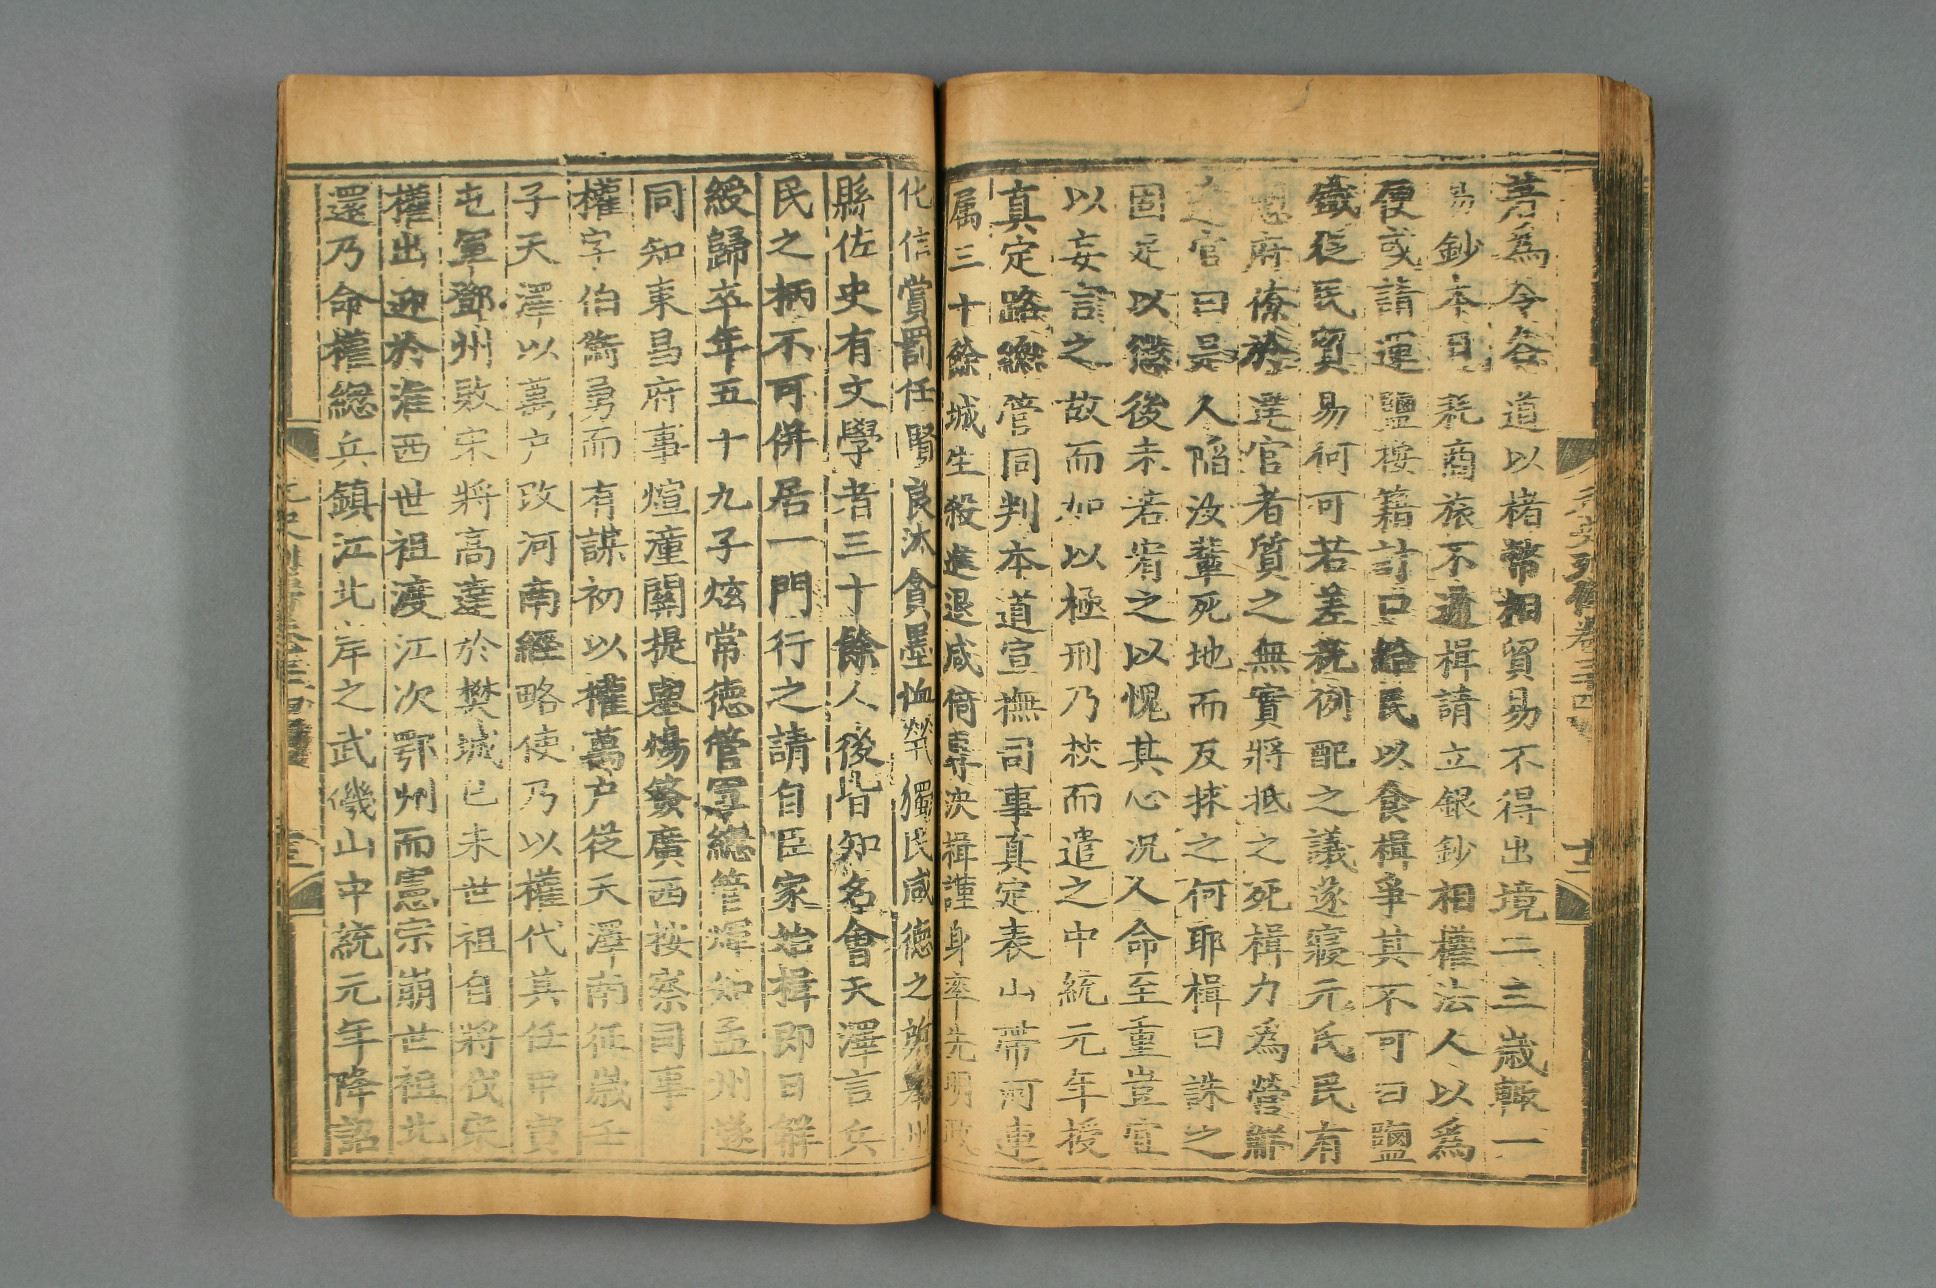 元史列傳卷三十四
十二
著為令各道以楮幣相貿易不得出境二三歲輙一
易鈔本日耗商旅不通楫請立銀鈔相權法人以為
便或請運鹽按籍計口給民以食楫爭其不可曰鹽
鐵從民貿易何可若差稅例配之議遂寢元氏民有
愬府僚於達官者質之無實將抵之死楫力為營解
達官曰是人陷汝輩死地而反捄之何耶楫曰誅之
固足以懲後未若宥之以愧其心況人命至重豈宜
以妄言之故而加以極刑乃杖而遣之中統元年授
真定路緫管同判本道宣撫司事真定表山帶河連
属三十餘城生殺進退咸倚專决楫謹身率先明政
化信賞罰任賢良汰貪墨恤煢獨民咸德之所舉州
縣佐史有文學者三十餘人後皆知名會天澤言兵
民之柄不可併居一門行之請自臣家始楫即日解
綬歸卒年五十九子炫常德管軍緫管煇知孟州遂
同知東昌府事煊潼關提舉煬簽廣西按察司事
權字伯衡勇而有謀初以權萬户從天澤南征歲壬
子天澤以萬户改河南經略使乃以權代其任甲寅
屯軍鄧州敗宋將高達於樊城己未世祖自將伐宋
權出迎於淮西世祖渡江次鄂州而憲宗崩世祖北
還乃命權緫兵鎮江北岸之武磯山中統元年降詔